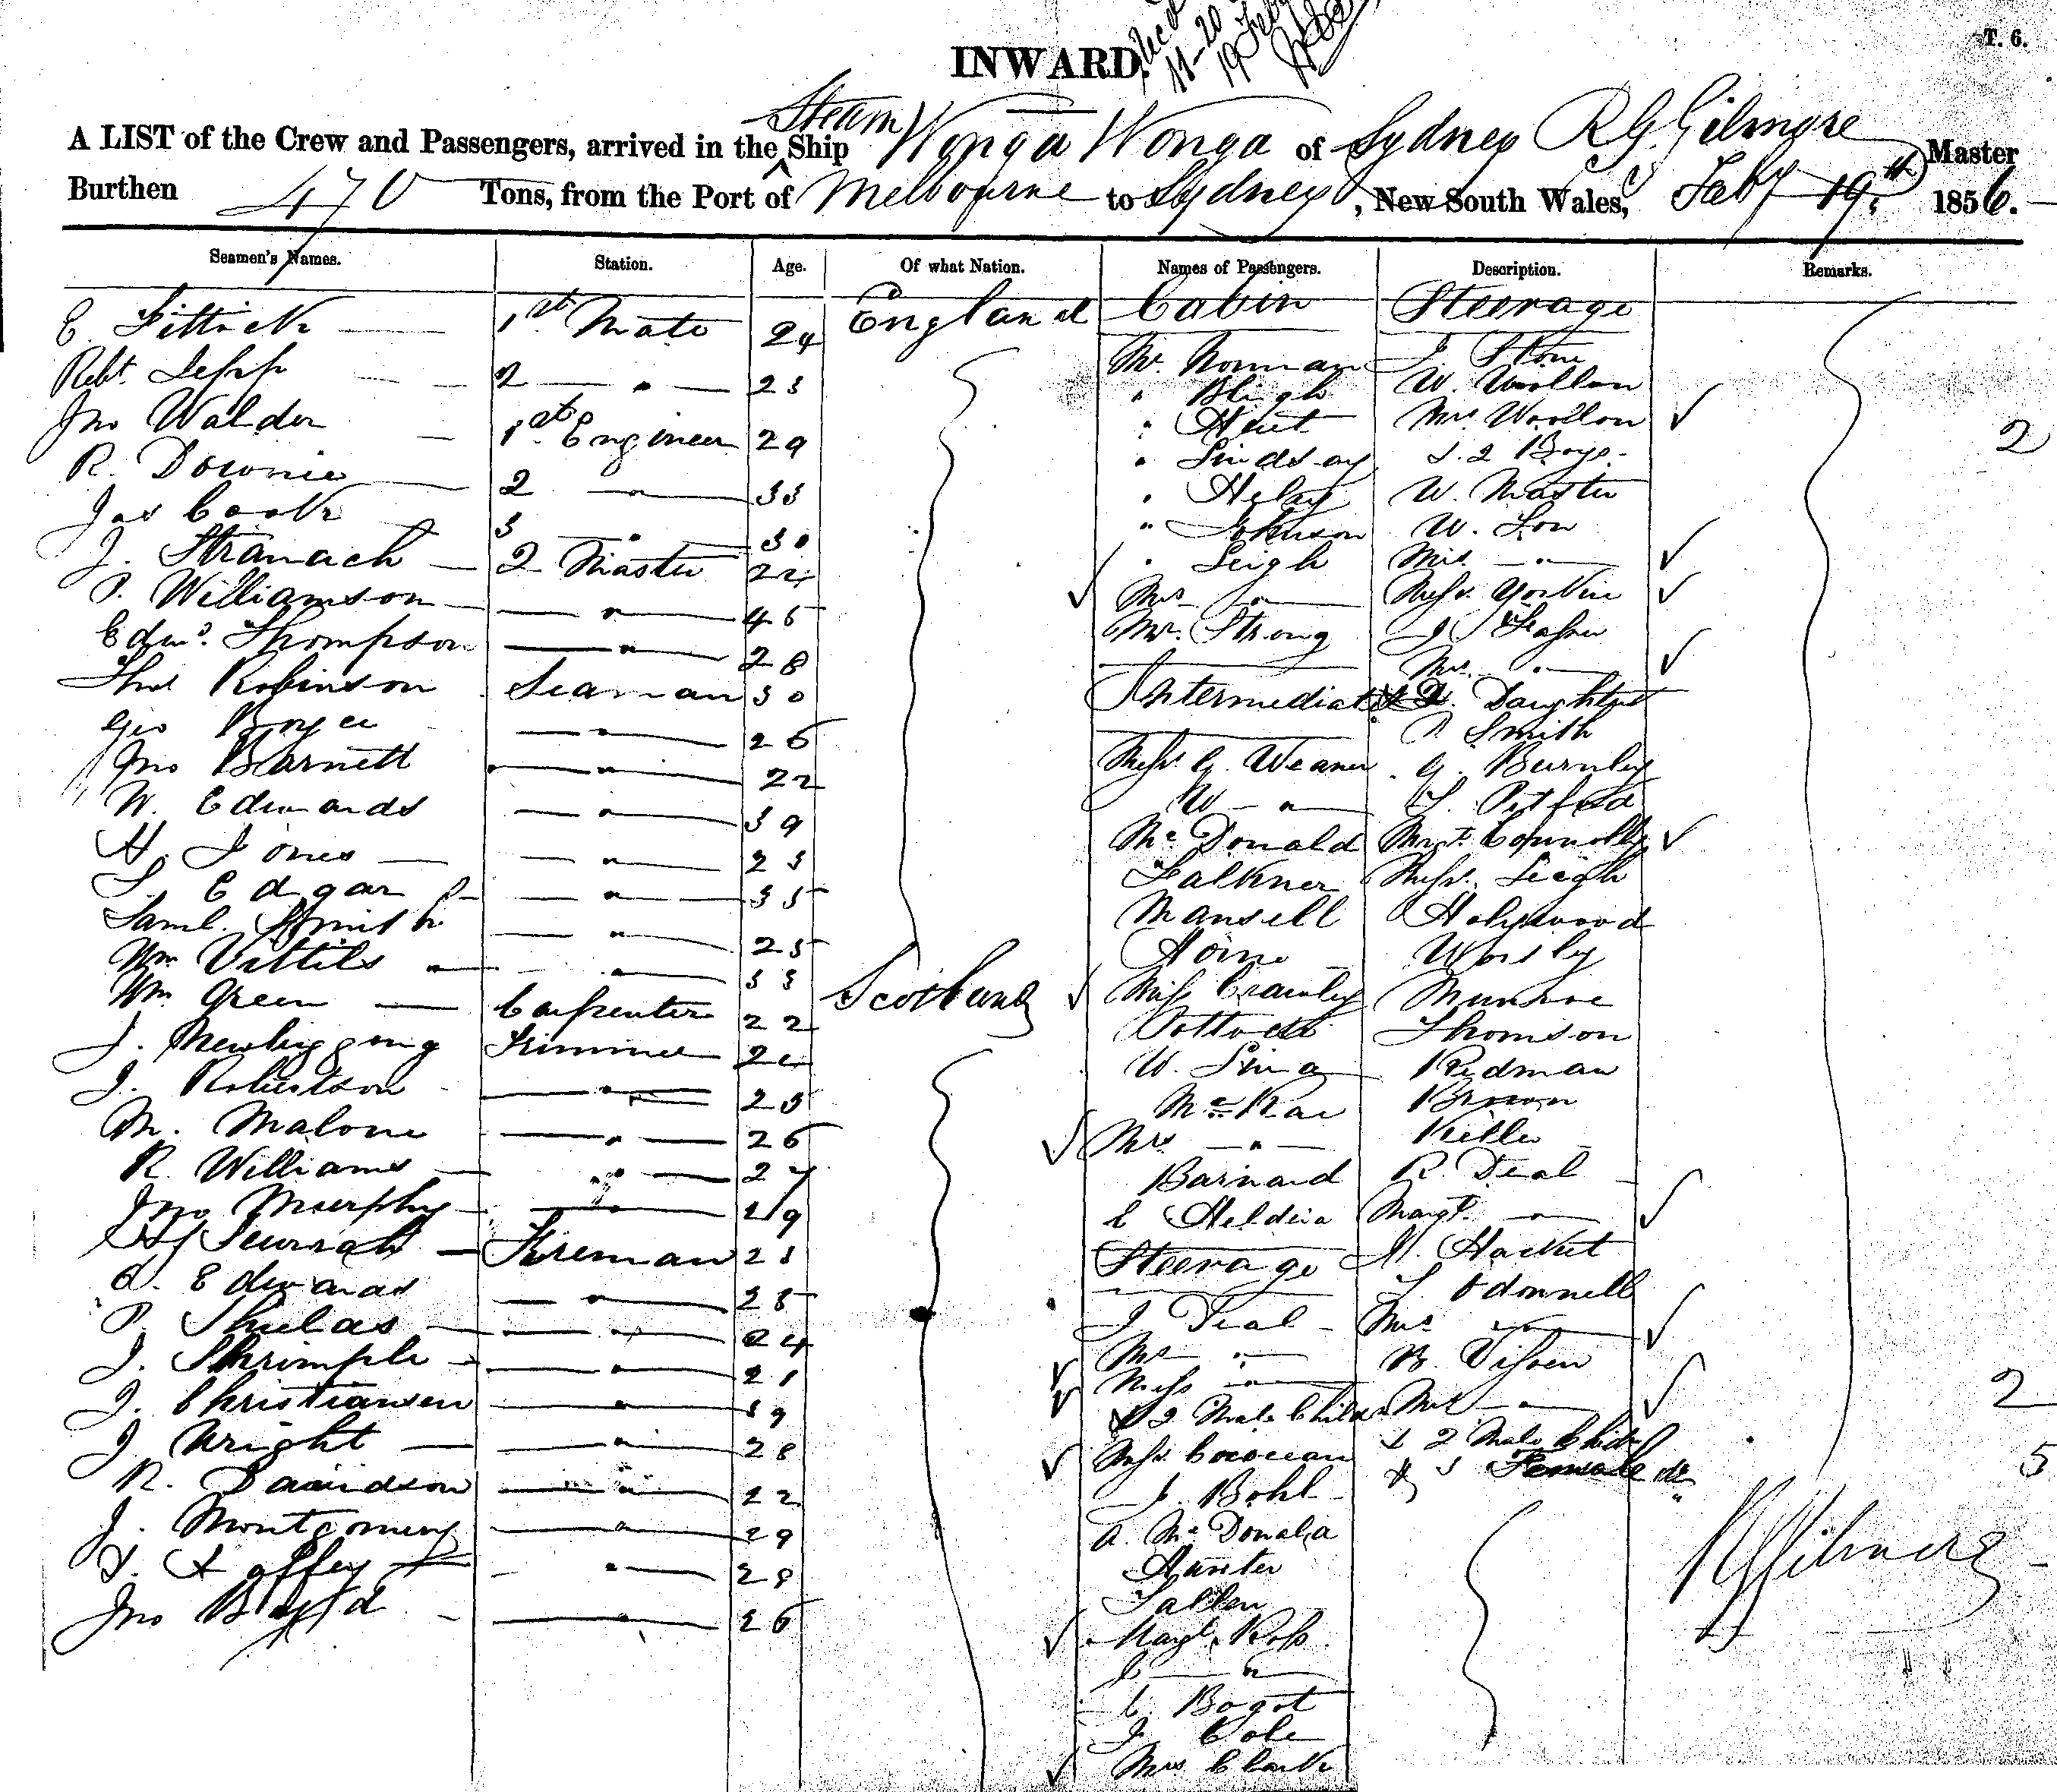 T. 6.
INWARD.
11-20
19 Feby
Steam
A LIST of the Crew and Passengers, arrived in the Ship Wonga Wonga of Sydney R G. Gilmore Master
Burthen 470 Tons, from the Port of Melbourne to Sydney, New South Wales, Feby 19th 1856.
Seamen's Names. Station. Age. Of what Nation. Names of Passengers. Description. Remarks.
1st Mate 24 England Cabin Steerage
Robt. Jepp 2 " 23
Jno Walder 1st Engineer 29
R. Downie 2 " 33
Jas Cook 3 " 30
J. Stranach 2 Master 24
P. Williamson " 45
Edwd. Thompson " 28
Thos Robinson Seaman 30
Geo Boyce " 26
Jno Barnett " 22
W. Edwards " 39
H. Jones " 23
S. Edgar " 35
Saml. Smith " 25
Wm " 33
Wm Green Carpenter 22 Scotland
J. Newbigging Trimmer 24
J. Robertson " 25
M. Malone " 26
R. Williams " 27
Jno Murphy " 19
Fireman 23
A. Edwards " 25
P. " 24
J. Shrimpli " 21
J. Christiansen " 39
J Wright " 28
R. Davidson " 22
J. Montgomery " 29
" 28
Jno Boyd " 26
Mr. Norman
" Bligh
" Hunt
" Lindsay
"
" Johnson
" Leigh
Mrs "
Mr. Strong
Intermediate
Messrs. G. Weaver
W "
McDonald
Falkner
Mansell
Horne
Miss Crawley
W. Sing
McRae
Mrs "
Barnard
Steerage
J Teal
Mrs "
Miss "
& 2 Male Child
J. Bohl
A. McDonald
Hunter
Fallen
Margt. Ross
J "
C. Bogot
J Cole
Mrs Clark
J. Stone
W. Woollon
Mrs Woollon
& 2 Boys
W. Master
W. Low
Mrs "
J
Mrs "
& Daughter
P Smith
G. Burnley
Margt. Connolly
Messrs. Leigh
Holywood
Worsley
Munroe
Thomson
Redman
Brown
R. Deal
Margt. "
Hacket
Odonnell
Mrs "
Mrs "
& 2 Male Child
& 3 Female do
2
2
5
RGGilmore